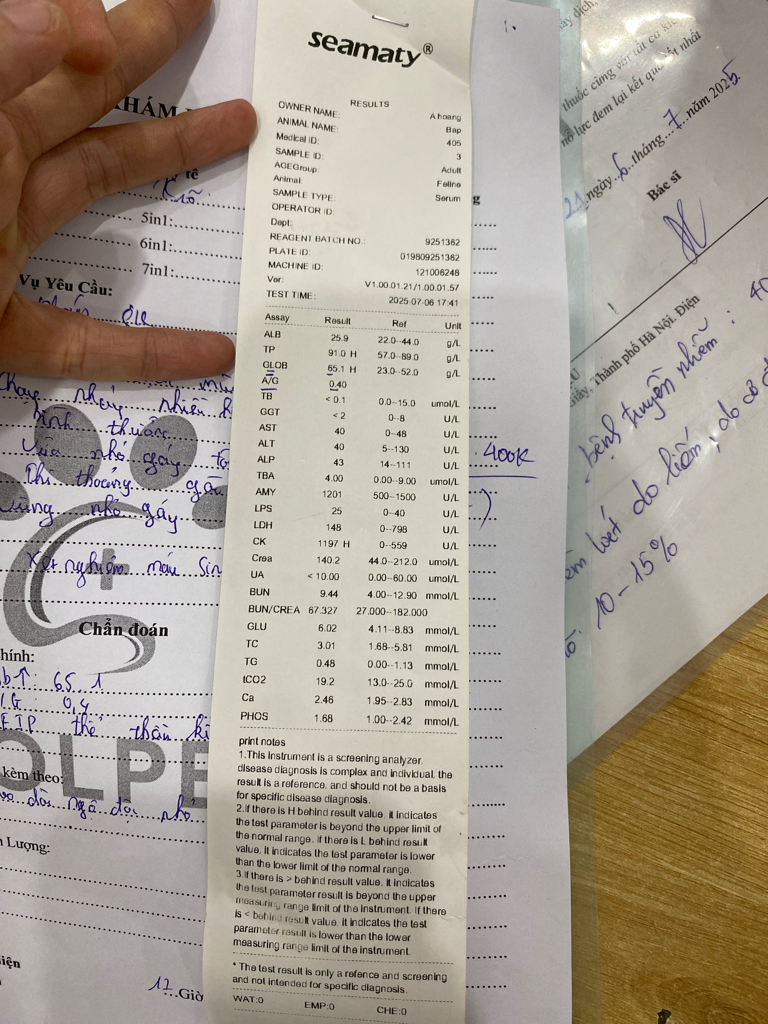 seamaty®
RESULTS
OWNER NAME: A hoang
ANIMAL NAME: Bap
Medical ID: 405
SAMPLE ID: 3
AGEGroup: Adult
Animal: Feline
SAMPLE TYPE: Serum
OPERATOR ID:
Dept:
REAGENT BATCH NO.: 9251362
PLATE ID: 019809251362
MACHINE ID: 121006248
Ver: V1.00.01.21/1.00.01.57
TEST TIME: 2025-07-06 17:41
Assay Result Ref Unit
ALB 25.9 22.0--44.0 g/L
TP 91.0 H 57.0--89.0 g/L
GLOB 65.1 H 23.0--52.0 g/L
A/G 0.40
TB < 0.1 0.0--15.0 umol/L
GGT < 2 0--8 U/L
AST 40 0--48 U/L
ALT 40 5--130 U/L
ALP 43 14--111 U/L
TBA 4.00 0.00--9.00 umol/L
AMY 1201 500--1500 U/L
LPS 25 0--40 U/L
LDH 148 0--798 U/L
CK 1197 H 0--559 U/L
Crea 140.2 44.0--212.0 umol/L
UA < 10.00 0.00--60.00 umol/L
BUN 9.44 4.00--12.90 mmol/L
BUN/CREA 67.327 27.000--182.000
GLU 6.02 4.11--8.83 mmol/L
TC 3.01 1.68--5.81 mmol/L
TG 0.48 0.00--1.13 mmol/L
tCO2 19.2 13.0--25.0 mmol/L
Ca 2.46 1.95--2.83 mmol/L
PHOS 1.68 1.00--2.42 mmol/L
print notes
1.This instrument is a screening analyzer.
disease diagnosis is complex and individual. the
result is a reference, and should not be a basis
for specific disease diagnosis.
2.if there is H behind result value, it indicates
the test parameter is beyond the upper limit of
the normal range. if there is L behind result
value, it indicates the test parameter is lower
than the lower limit of the normal range.
3.if there is > behind result value, it indicates
the test parameter result is beyond the upper
measuring range limit of the instrument. If there
is < behind result value, it indicates the test
parameter result is lower than the lower
measuring range limit of the instrument.
* The test result is only a refence and screening
and not intended for specific diagnosis.
WAT:0 EMP:0 CHE:0
KHÁM
5in1:
6in1:
7in1:
Vụ Yêu Cầu:
bình thường
Thi thoảng
Xét nghiệm máu Sin
Chẩn đoán
hính:
65.1
0,4
FIP thể thần ki
kèm theo:
Lượng:
17 Giờ
400k
thuốc cùng với tất cả
nỗ lực đem lại kết quả tốt nhất
ngày 6 tháng 7 năm 2025
Bác sĩ
Giấy, Thành phố Hà Nội. Điện
bệnh truyền nhiễm: 40
do hiếm, do có
10 - 15%